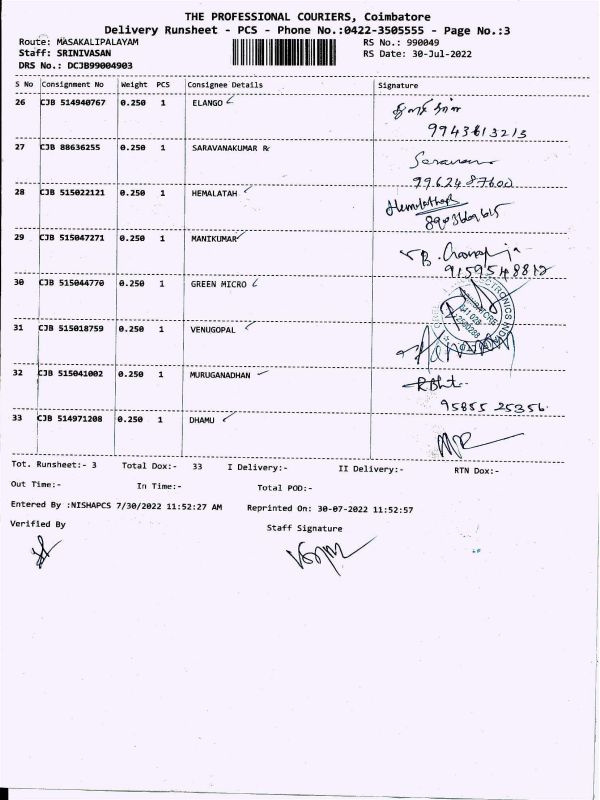 THE PROFESSIONAL COURIERS, Coimbatore
Delivery Runsheet - PCS - Phone No.:0422-3505555 - Page No.:3
Route: MASAKALIPALAYAM RS No.: 990049
Staff: SRINIVASAN RS Date: 30-Jul-2022
DRS No.: DCJB99004903
S No Consignment No Weight PCS Consignee Details Signature
26 CJB 514940767 0.250 1 ELANGO
27 CJB 88636255 0.250 1 SARAVANAKUMAR R
Saravan
99624 87600
28 CJB 515022121 0.250 1 HEMALATAH
Hemalatha
8903609615
29 CJB 515047271 0.250 1 MANIKUMAR
30 CJB 515044770 0.250 1 GREEN MICRO
31 CJB 515018759 0.250 1 VENUGOPAL
32 CJB 515041002 0.250 1 MURUGANADHAN
95855 25356
33 CJB 514971208 0.250 1 DHAMU
Tot. Runsheet:- 3 Total Dox:- 33 I Delivery:- II Delivery:- RTN Dox:-
Out Time:- In Time:- Total POD:-
Entered By :NISHAPCS 7/30/2022 11:52:27 AM Reprinted On: 30-07-2022 11:52:57
Verified By Staff Signature